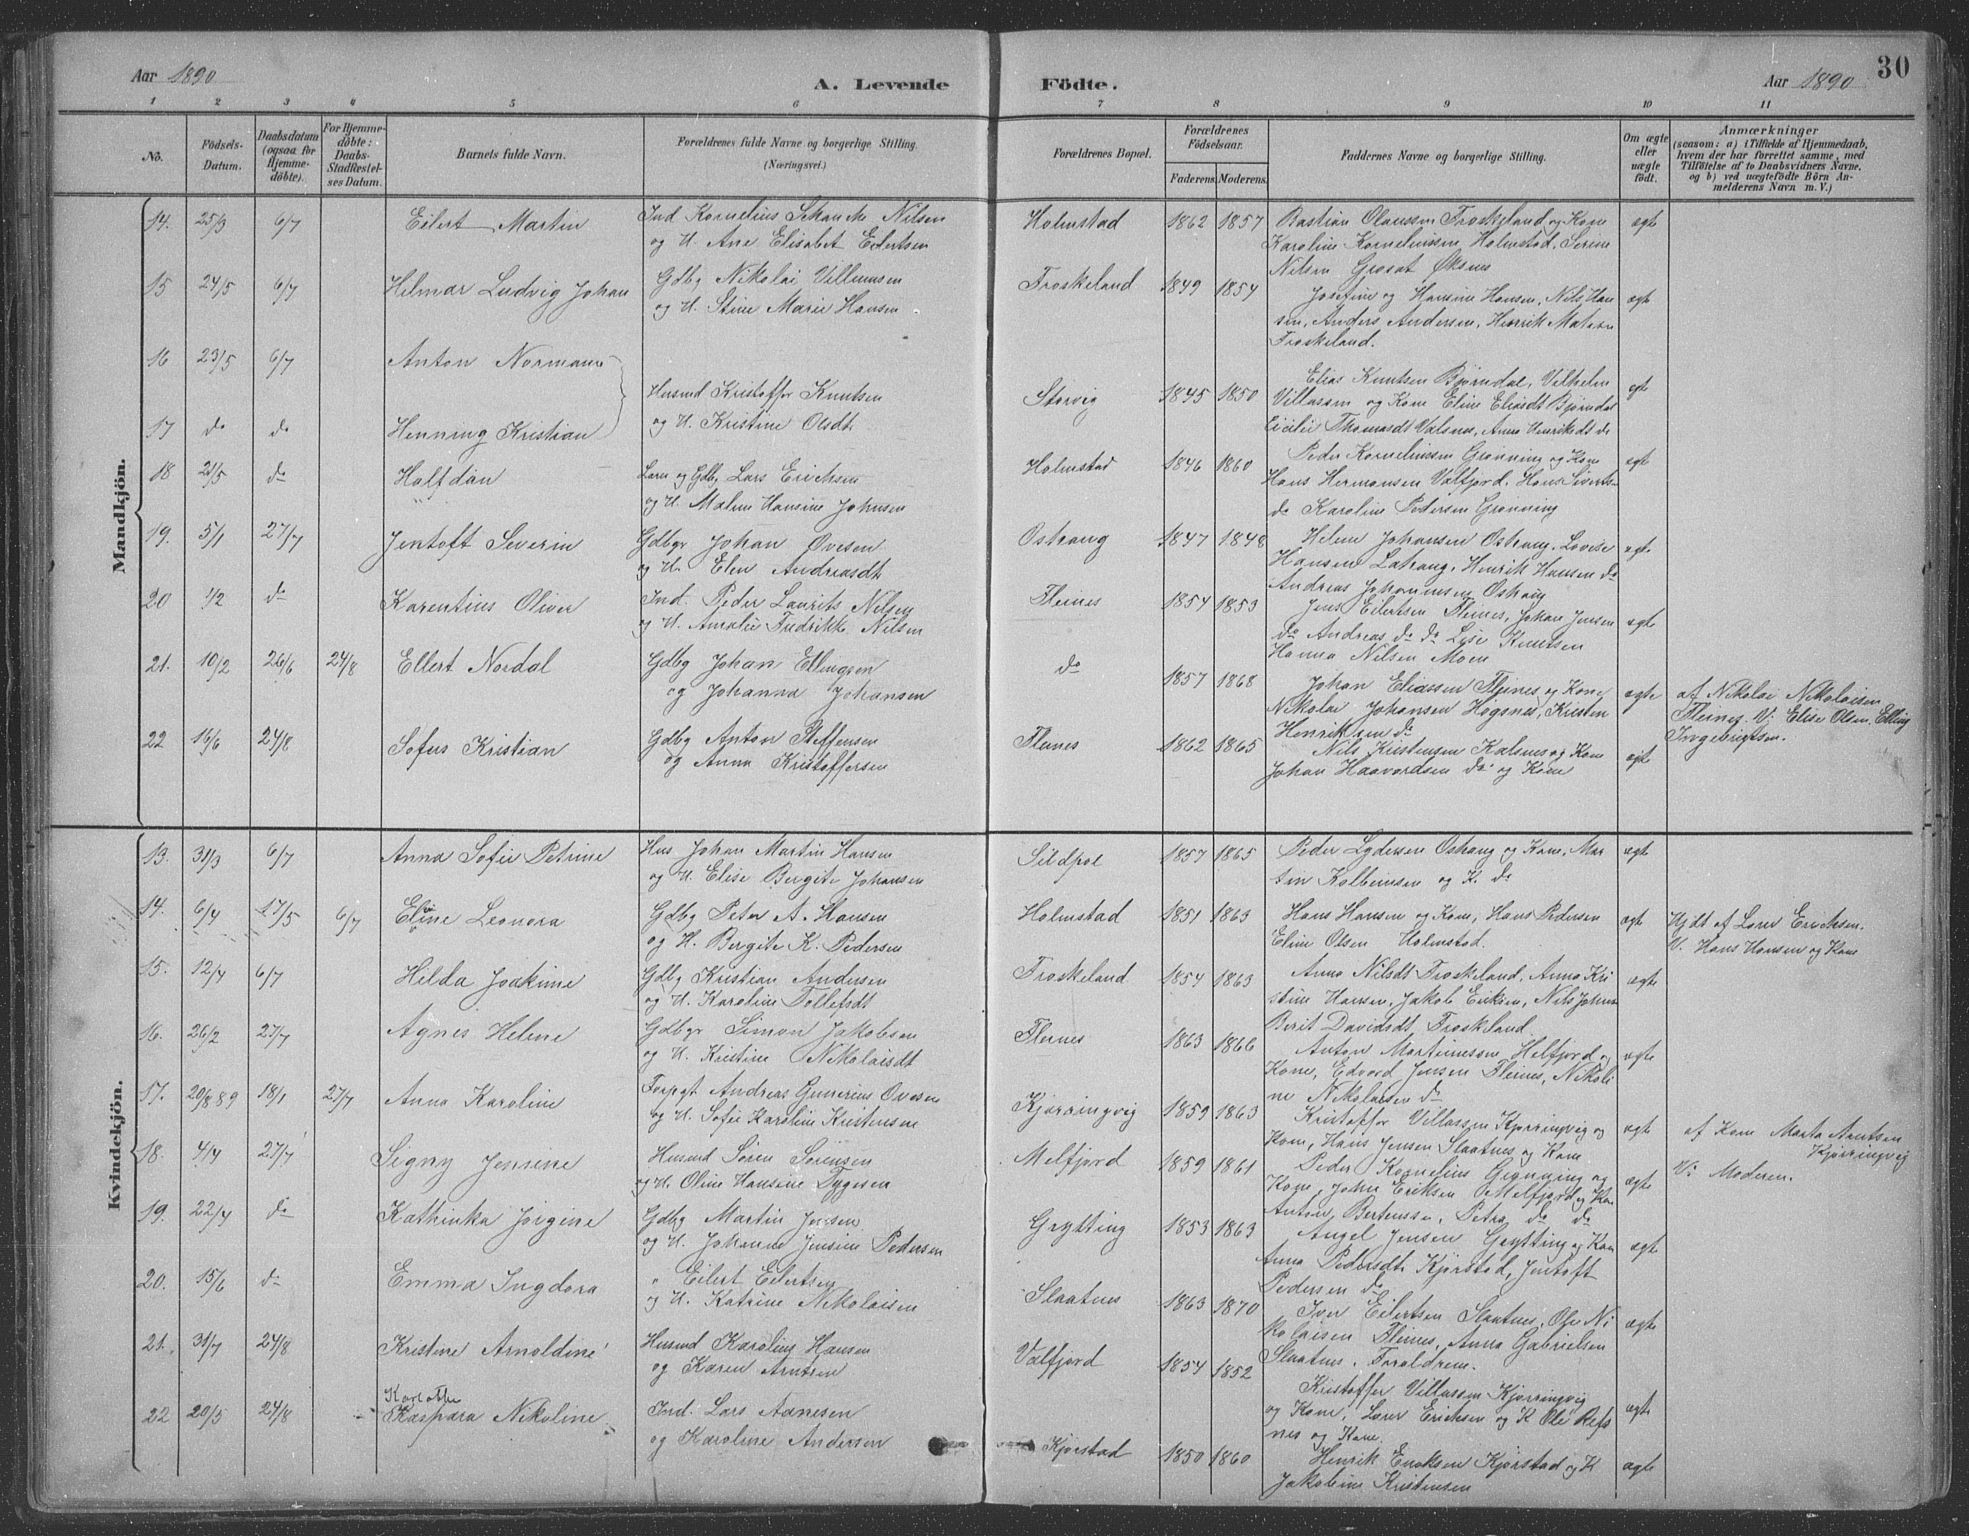 Aar 1890
A. Levende
Födte.
Aar 1890
30
1 2 3 4 5 6 7 8 9 10 11
No.
Födsels-Datum.
Daabsdatum (ogsaa for Hjemme-döbte).
For Hjemme-döbte: Daabs-Stadfæstel-ses Datum.
Barnets fulde Navn.
Forældrenes fulde Navne og borgerlige Stilling. (Næringsvei.)
Forældrenes Bopæl.
Forældrenes Födselsaar.
Faderens. Moderens.
Faddernes Navne og borgerlige Stilling.
Om ægte eller uægte födt.
Anmærkninger
(saasom: a) i Tilfælde af Hjemmedaab, hvem der har forrettet samme, med Tilföielse af to Daabsvidners Navne, og b) ved uægtefödte Börn An-melderens Navn m. V.)
Mandkjön.
14. 25/3 6/7 Eilert Martin
Ind Kornelius Schanche Nilsen
og H. Ane Elisabet Eilertsen
Holmstad 1862 1857
Bastian Olaussen Froskeland og Kone
Karoline Kornelinssen, Holmstad, Serine
Nilsen Øksnes
ægte
15 24/5 6/7 Hilmar Ludvig Johan
Gdbg Nikolai Villumsen
og H. Stine Marie Hansen
Froskeland 1849 1854
Josefine og Hansine Hansen, Nils Han
sen, Anders Andersen, Henrik
Froskeland.
ægte
16 23/5 6/7 Anton Normann
17 do do Henning Kristian
Husmd Kristoffer Knutsen
og H. Kristine Olsdt
Storvig 1845 1850
Elias Knutsen Bjørndal, Vilhelm
Villassen og Kone Eline Eliasdt Bjørndal
Thomasdt Valsnes, Anna Henrikdt do
ægte
18 21/5 do Halfdan
og Gdbg Lars Erichsen
og H. Malene Hansine Johnsen
Holmstad 1846 1860
Peder Kornelinssen Grønning og Kone
Hans Hermansen Valfjord, Hans Siverts-
do Karoline Pedersen Grønning
ægte
19. 5/1 27/7 Jentoft Severin
Gdbgr Johan Ovesen
og H. Elen Andreasdt
Oshaug 1847 1848
Helene Johansen Oshaug, Lovise
Hansen, Henrik Hansen do
Andreas Johannesen Oshaug
ægte
20 1/2 do Karentius Oliver
Ind. Peder Laurits Nilsen
og H. Amalie Fredrikke Nilsen
Fleines 1854 1853
Jens Eilertsen Fleines, Johan Jensen
do Andreas do do Lise Knutsen
Hanna Nilsen Moen
ægte
21. 10/2 26/6 24/8 Ellert Nordal
Gdbg Johan Ellingsen
og Johanna Johansen
do 1857 1868
Johan Eliassen Fleines og Kone
Nikolai Johansen Høgsnes, Kristen
Henriksen do
ægte
af Nikolai Nikolaisen
Fleines. V: Elise Olsen, Elling
Ingebrigtsen.
22 16/6 24/8 Sofus Kristian
Gdbg Anton Steffensen
og Anna Kristoffersen
Fleines 1862 1865
Nils Kristensen Kalsnes og Kone
Johan Haavardsen do og Kone
ægte
Kvindekjön.
13. 31/3 6/7 Anna Sofie Petrine
Hus Johan Martin Hansen
og H Elise Bergite Johansen
Sildpol 1857 1865
Peder Lydersen Oshaug og Kone, Mar
tin Kolbeinsen og K. do
ægte
14. 6/4 17/5 6/7 Eline Leonora
Gdbg Peter A. Hansen
og H. Bergite K. Pedersen
Holmstad 1851 1863
Hans Hansen og Kone, Hans Pedersen
Eline Olsen Holmstad.
ægte
Hjdt af Lærer Erichsen.
V. Hans Hansen og Kone
15. 12/4 6/7 Helda Joakime
Gdbg Kristian Andersen
og H. Karoline Tollefsdt
Froskeland 1854 1863
Anna Nilsdt Froskeland, Anna Kri
stine Hansen, Jakob Eriksen, Nils Johns
Berit Davidsdt, Froskeland
ægte
16. 26/2 27/7 Agnes Helene
Gdbgr Simon Jakobsen
og H. Kristine Nikolaisdt
Fleines 1863 1866
Anton Martinussen Helfjord og
Kone, Edvard Jensen Fleines, Nikoli
ne Nikolaisen do
ægte
17. 20/8 89 18/1 27/7 Anna Karoline
Forpgt Andreas Gunerius Ovesen
og H. Sofie Karoline Kristensen
Kjørringvig 1859 1863
Kristoffer Villassen Kjørringvig og
Kone, Hans Jensen Slaatnes og Kone
ægte
af Kone Marta Arntsen
Kjørringvig
V: Moderen.
18. 4/4 27/7 Signy Jensine
Husmd Søren Sørensen
og H. Oline Hansine Tygesen
Melfjord 1859 1861
Peder Kornelius Grønning og
Kone, John Eriksen Melfjord og Kone
Anton Berteussen, Petra do do
ægte
19. 22/4 do Kathinka Jørgine
Gdbg Martin Jensen
og H. Johanne Jensine Pedersen
Grytting 1853 1863
Angel Jensen Grytting og Kone
Anna Pedersdt Kjørstad, Jentoft
Pedersen do
ægte
20. 15/6 do Emma Ingdora
" Eilert Eilertsen
og H. Katrine Nikolaisen
Slaatnes 1863 1870
Iver Eilertsen Slaatnes, Ole Ni
kolaisen Fleines, Anna Gabrielsen
Slaatnes, Forældrene.
ægte
21. 31/7 24/8 Kristine Arnoldine
Husmd Karolius Hansen
og Karen Arntsen
Valfjord 1854 1852
Kristoffer Villassen Kjørringvig
og Kone, Lærer Erichsen og K Ole Refs
nes og Kone.
ægte
22 20/5 24/8 Kaspara Nikoline
Ind. Lars Aanesen
og Karoline Andersen
Kjørstad 1850 1860
Henrik Eriksen Kjørstad og K
Jakobine Kristensen
ægte